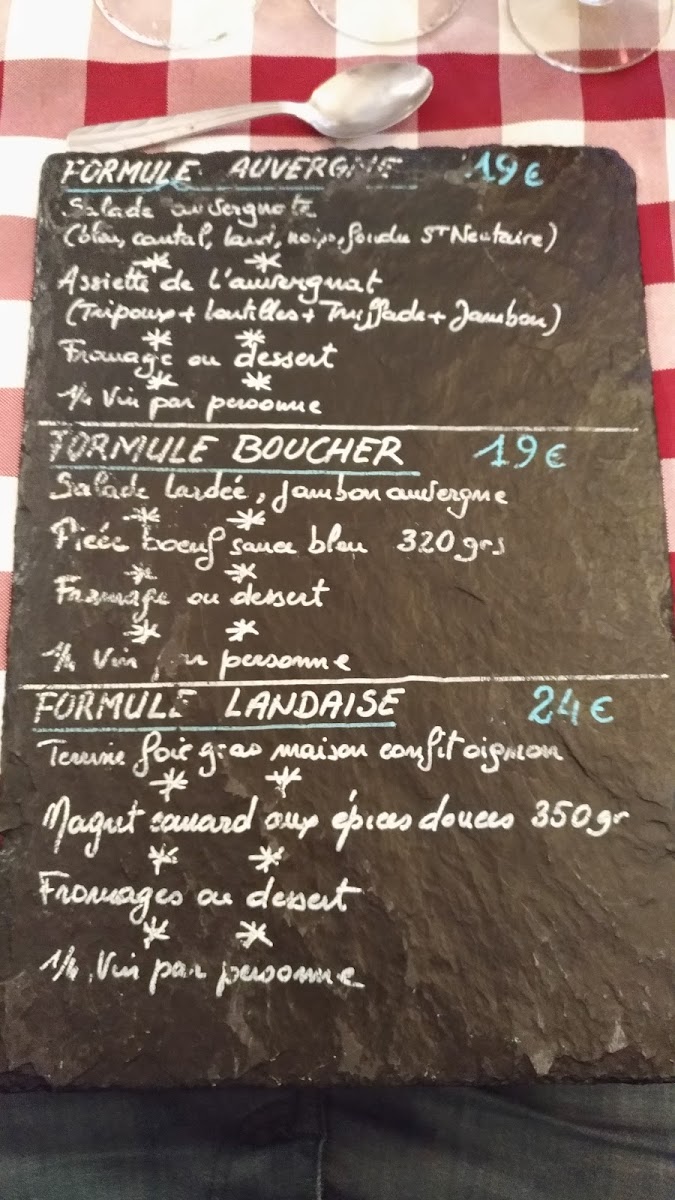 FORMULE AUVERGNE 19€
Salade auvergnate
(bleu, cantal, lard, noix, fondu St Nectaire)
Assiette de l'auvergnat
(Tripoux + lentilles + Truffade + Jambon)
Fromage ou dessert
1/4 Vin par personne
FORMULE BOUCHER 19€
Salade lardée, jambon auvergne
Pièce boeuf sauce bleu 320grs
Fromage ou dessert
1/4 Vin par personne
FORMULE LANDAISE 24€
Terrine foie gras maison confit oignon
Magret canard aux épices douces 350gr
Fromages ou dessert
1/4 Vin par personne